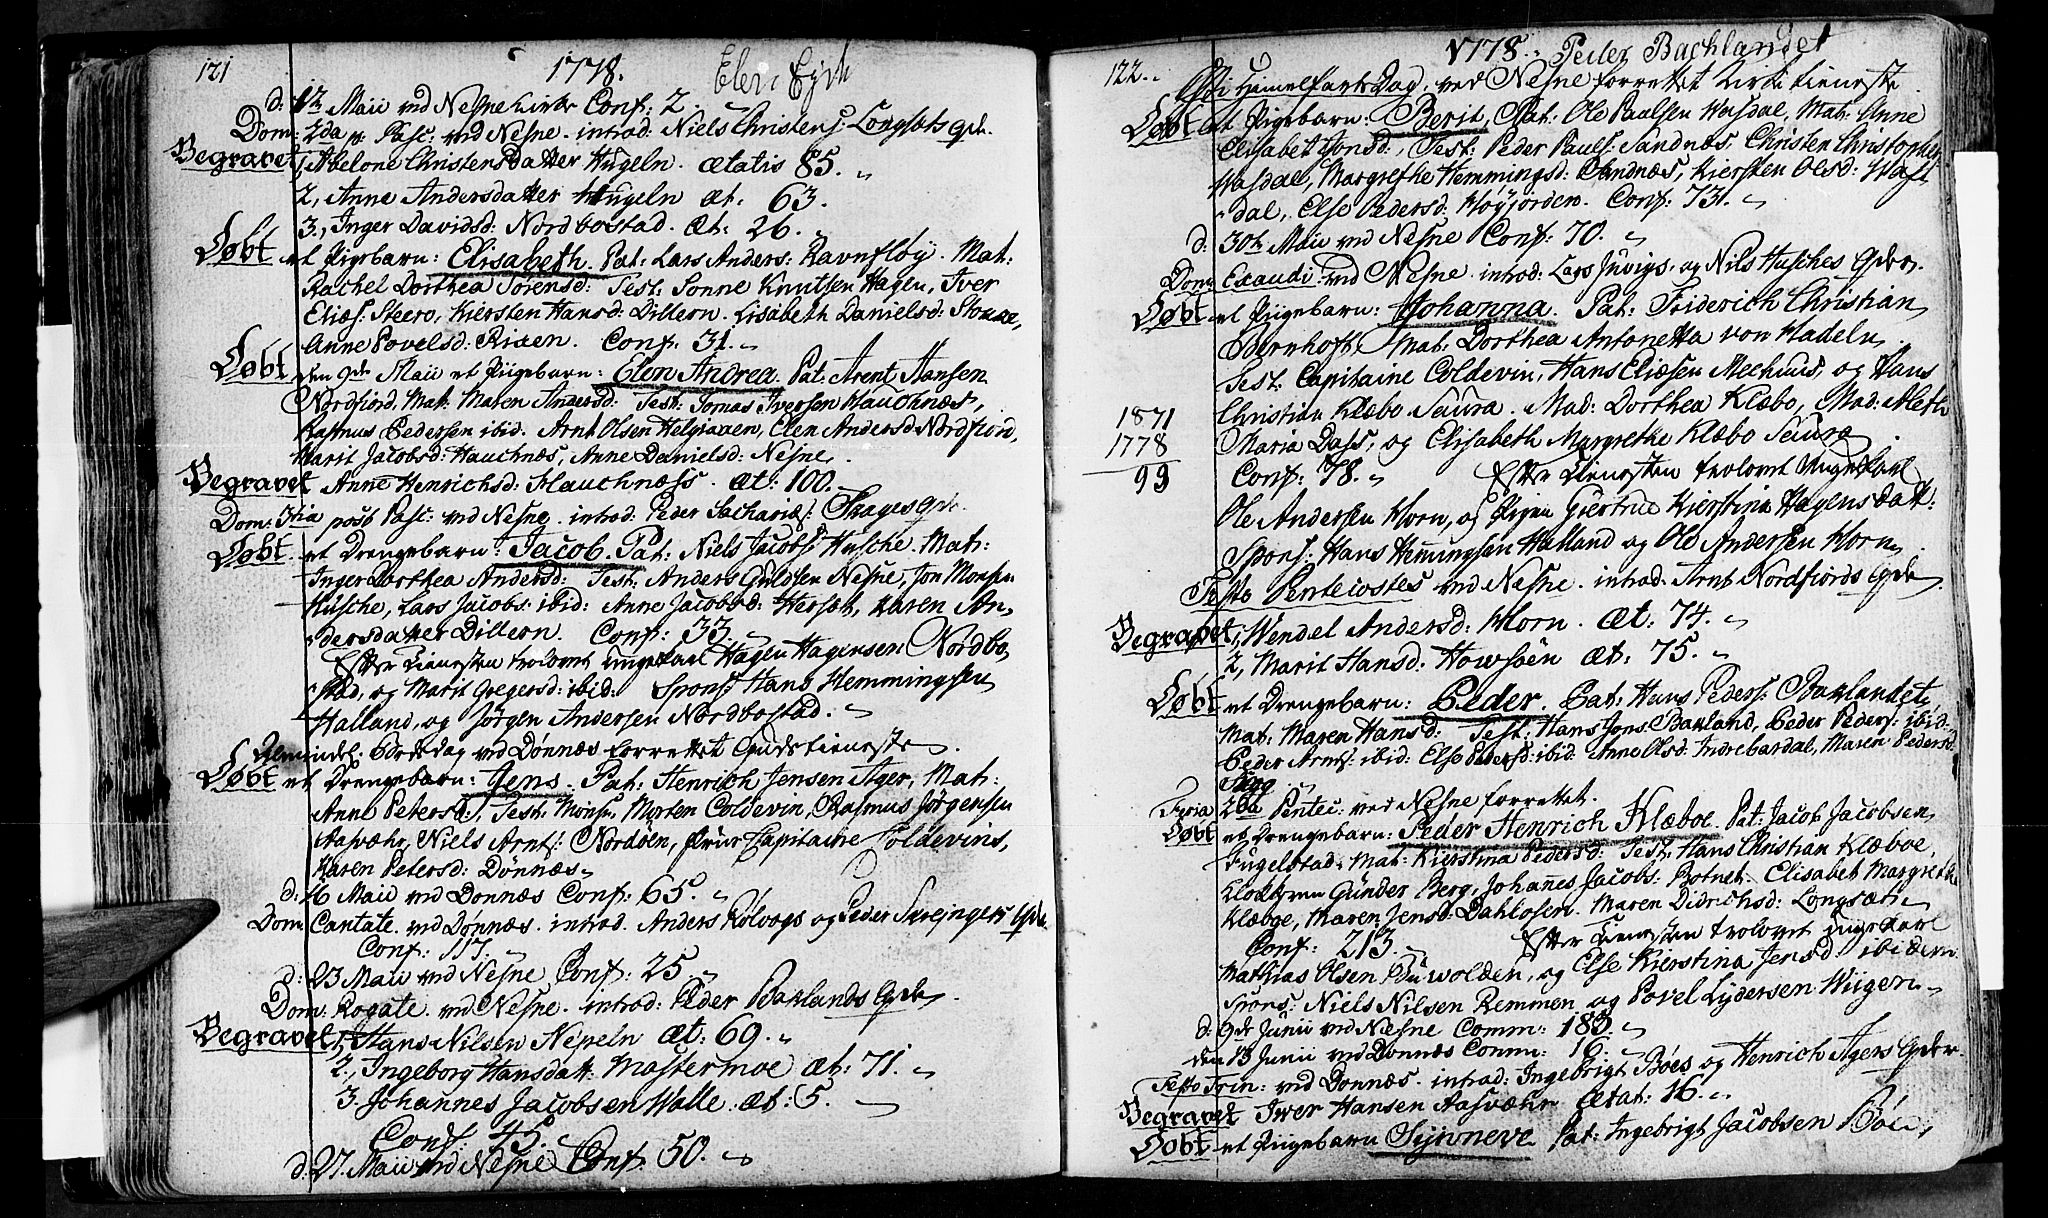 121
1778.
Elen Eyd
d: 12 Maii ved Nesne Kirke Conf: 2.
Dom: 2da p. Pasc. ved Nesne. introd: Niels Christens: Longsæts qvde.
Begravet 1, Abelone Christensdatter Hugeln. ætatis 85.
2, Anne Andersdatter Hugeln æt: 63.
3, Inger Davidsd: Nordbostad. æt: 26.
Døbt et Pigebarn: Elisabeth. Pat: Lars Anders: Ravnfløÿ. Mat:
Rachel Dorthea Sørensd: Test: Sonne Knutsen Hagen, Iver
Eliæs: Steero, Kiersten Hansd: Dillern. Lisabeth Danielsd:
Anne Povelsd: Risen. Conf: 31.
Døbt den 9de Maii et Piigebarn: Elen Andrea. Pat: Arent Hansen
Nordfiord, Mat: Maren Andersd: Test: Tomas Iversen Hauchnæs,
Rasmus Pedersen ibid. Arnt Olsen Helgiaaen, Elen Andersd: Nordfiord,
Marit Jacobsd: Hauchnæs, Anne Danielsd: Nesne.
Begravet Anne Henrichsd: Hauchnæss. æt: 100.
Dom: 3tia post Pasc: ved Nesne. introd: Peder Sachariæ: Skages qvde.
Døbt et Drengebarn: Jacob. Pat: Niels Jacobs: Husche. Mat:
Inger Dorthea Andersd: Test: Anders Guldsen Nesne, Jon Monsen
Husche, Lars Jacobs: ibid: Anne Jacobsd: Hersæt, Karen An-
dersdatter Dillern. Conf: 33.
Efter Tienesten trolovet Ungekarl Hagen Hagensen Nordbo-
stad, og Marit Gregersd: ibid: Spons: Hans Hemmingsen
Halland, og Jørgen Andersen Nordbostad.
Almindel. Bededag ved Dønnæs forrettet Gudstieneste.
Døbt et Drengebarn: Jens. Pat: Henrich Jensen Ager, Mat:
Anne Petersd:, Test: Mons: Morten Coldevin, Rasmus Jørgensen
Aasvæhr, Niels Arnts: Nordøen, Frue Capitaine Coldevins,
Karen Petersd: Dønnæs.
d: 16 Maii ved Dønnæs Conf: 65.
Dom: Cantate. ved Dønnæs. introd. Anders Rølvogs og Peder Skejingers qvde.
Conf: 117.
d: 23 Maii ved Nesne Conf: 25.
Dom: Rogate. ved Nesne. introd: Peder Baklands qvde.
Begravet 1, Hans Nilsen Nepeln æt: 69.
2, Ingeborg Hansdatt: Mastermoe æt: 71.
3. Johannes Jacobsen Walle. æt: 5.
Conf. 45.
d: 27. Maii ved Nesne Conf 50.
122.
1778. Peder Bachlandet
Christi Himmelfarts Dag, ved Nesne forrettet Kirketieneste.
Døbt et Pigebarn: Berit, Pat: Ole Paulsen Wasdal, Mat: Anne
Elisabet Jonsd:, Test: Peder Pauls: Sandnæs, Christen Christophers:
Wasdal, Margrethe Hemmings: Sandnæs, Kiersten Olsd: Was-
dal, Else Pedersd: Høyjorden. Conf: 73.
d: 30te Maii ved Nesne Conf: 70.
Dom: Exaudi: ved Nesne. introd: Lars Juvigs. og Nils Husches qvder.
Døbt et Piigebarn: Johanna. Pat: Friderich Christian
Bernhoft, Mat: Dorthea Antonetta von Hadeln.
Test: Capitaine Coldevin, Hans Eliæsen Mechius, og Hans
Christian Klæbo Saura. Mad: Dorthea Klæbo, Mad: Aleth
Maria Dass, og Elisabeth Margrethe Klæbo Saura
Conf: 78. Efter Tienesten trolovet Ungekarl
1871
1778
93
Ole Andersen Horn, og Pigen Giertrue Kierstina Hagensdatt:
Spons: Hans Hemingsen Halland og Ole Andersen Horn.
Festo Pentecostes ved Nesne. introd: Arnt Nordfiords qvde.
Begravet 1, Wendel Andersd: Horn. æt: 74.
2, Marit Hansd: Howsøen æt: 75.
Døbt et Drengebarn: Peder. Pat: Hans Peders: Baklandet,
Mat: Maren Hansd: Test: Hans Jons: Bakland, Peder Peders: ibid.
Peder Arnts: ibid: Else Pedersd: ibid: Anne Olsd: Indrebardal, Maren Pedersd:
Skog
Feria 2da Pentec: ved Nesne forrettet.
Døbt et Drengebarn: Peder Henrich Klæboe. Pat: Jacob Jacobsen
Fugelstad, Mat: Kierstina Pedersd: Test: Hans Christian Klæboe,
Klokkeren Gunder Berg, Johannes Jacobs: Botnet. Elisabet Margrethe
Klæboe, Maren Jensd: Dahlosen. Maren Didrichsd: Longsæt.
Conf: 213. Efter Tienesten trolovet Ungekarl
Mathias Olsen Huwolden, og Else Kierstina Jensd ibidem.
Spons: Niels Nilsen Remmen og Povel Lydersen Wiigen.
d: 9de Junii ved Nesne Comm: 185.
den 13 Junii ved Dønnæs Comm: 16.
Festo Trin: ved Dønnæs. introd: Ingebrigt Bøes og Henrich Agers qvder.
Begravet Iver Hansen Aasvæhr ætat: 16.
Døbt et Pigebarn Synneve. Pat: Ingebrigt Jacobsen Bøe,